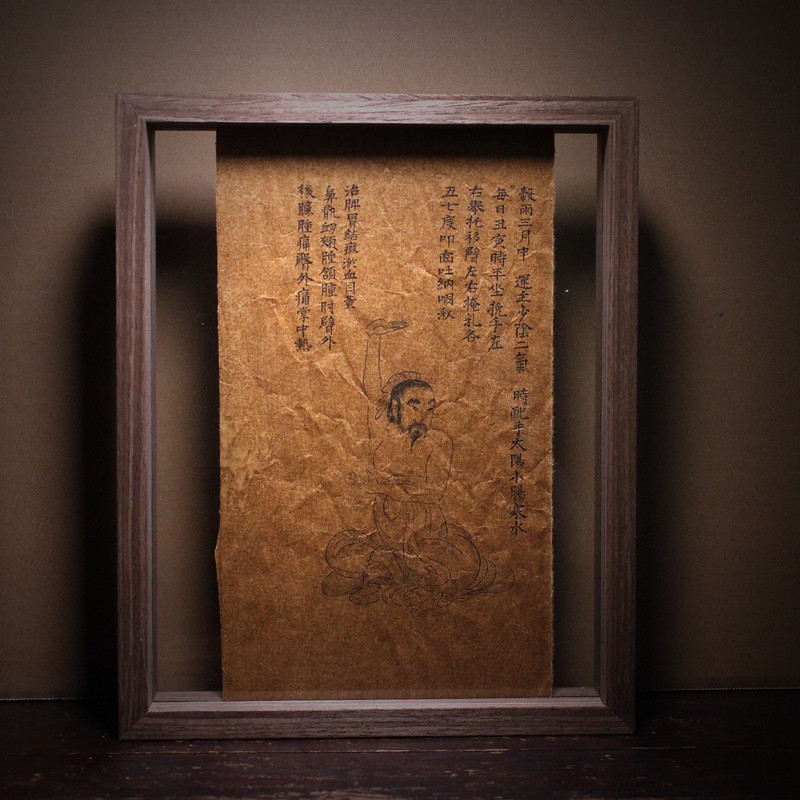 穀雨三月中　運主少陰二氣　時配手太陽小腸寒水
每日丑寅時平坐挽手左
右舉托移臂左右掩乳各
五七度叩齒吐納咽液
治脾胃結瘕淤血目黃
鼻鼽衂頰腫頷腫肘臂外
後臁腫痛臂外痛掌中熱